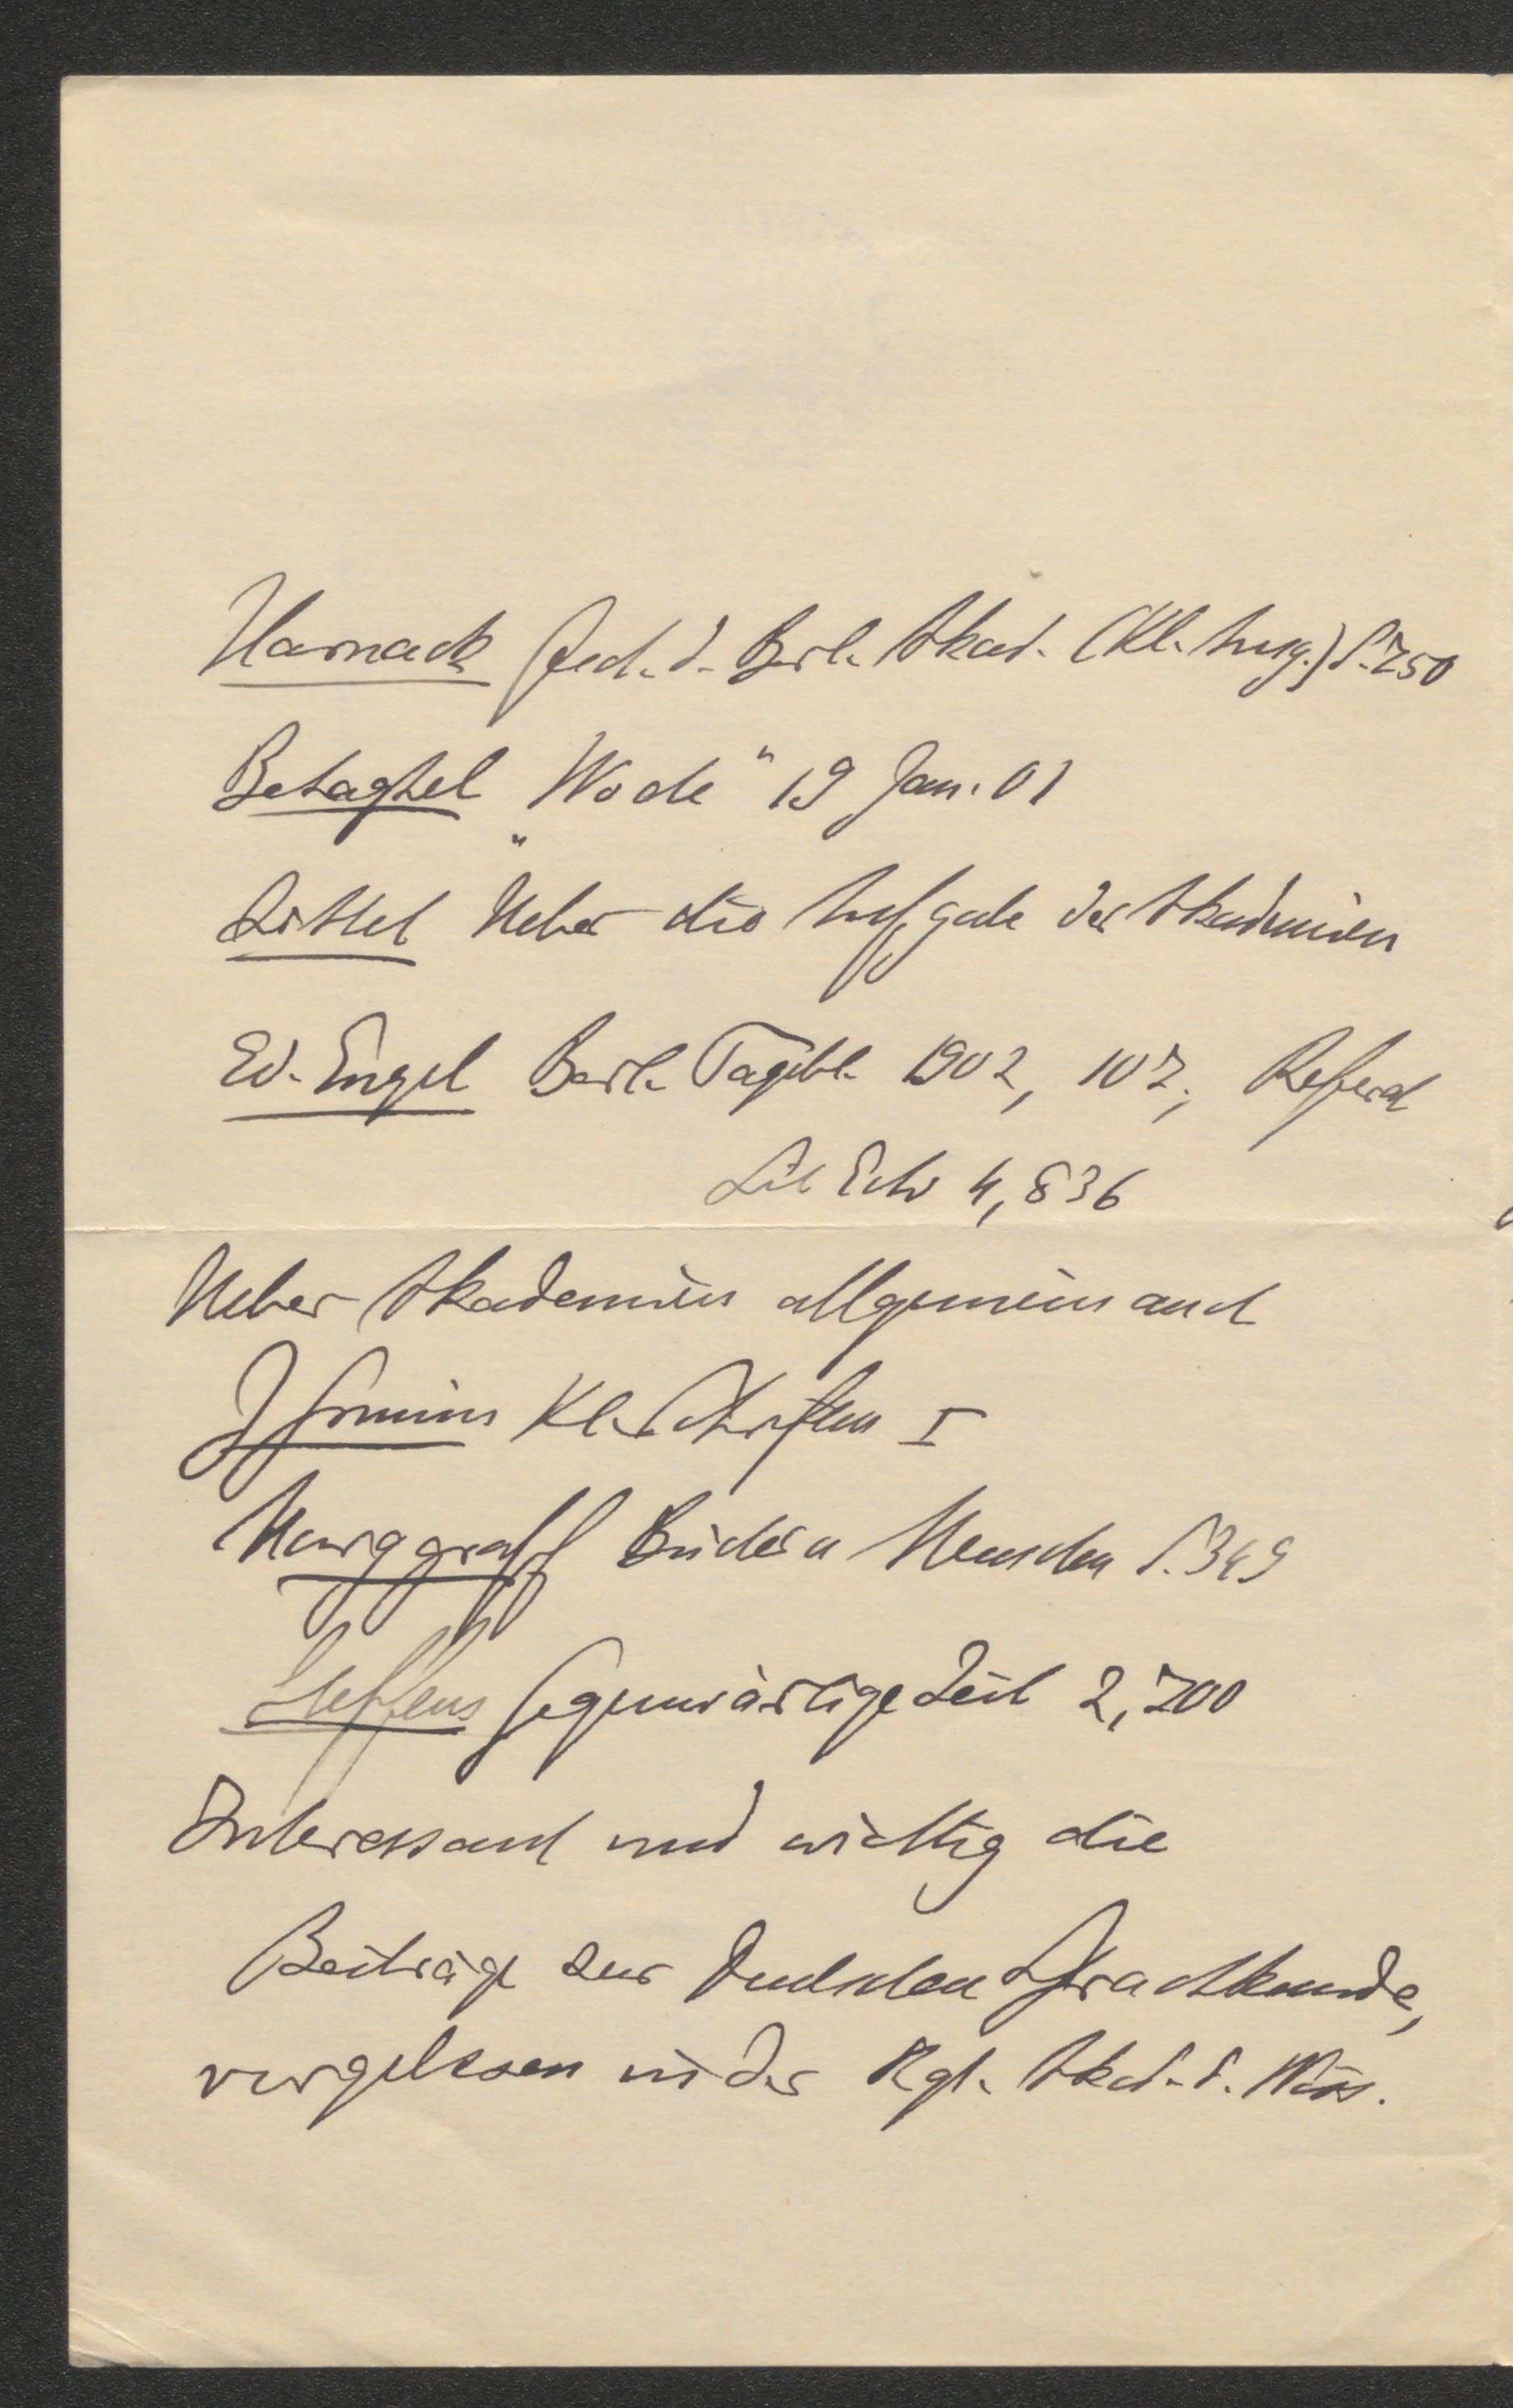 Harnack Gesch. d. Berl. Akad. (Kl. Ausg.) S. 750
Behaghel „Woche“ 19 Jan. 01
Zittel Ueber die Aufgabe der Akademien
Ed. Engel Berl. Tagebl. 1902, 107; Referat
Lit Echo 4, 836
Ueber Akademien allgemein auch
J Grimm Kl. Schriften I
Marggraff Bücher u Menschen S. 349
Steffens Gegenwärtige Zeit 2, 700
Interessant und wichtig die
Beiträge zur Deutschen Sprachkunde,
vorgelesen in der Kgl. Akad. d. Wiss.